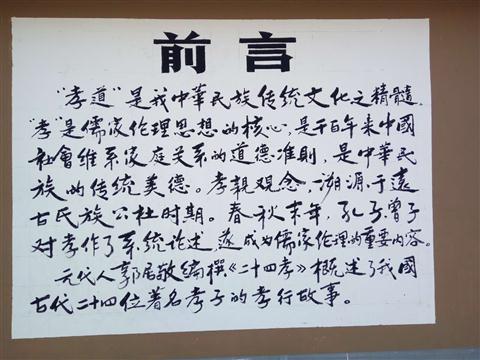 前言
“孝道”是我中華民族传统文化之精髓，
“孝”是儒家伦理思想的核心，是千百年来中國
社會维系家庭关系的道德准则，是中華民
族的传统美德。孝親观念，溯源于遠
古民族公社时期。春秋末年，孔子、曾子
对孝作了系统论述遂成为儒家伦理的重要内容。
元代人郭居敬编撰《二十四孝》概述了我國
古代二十四位著名孝子的孝行故事。